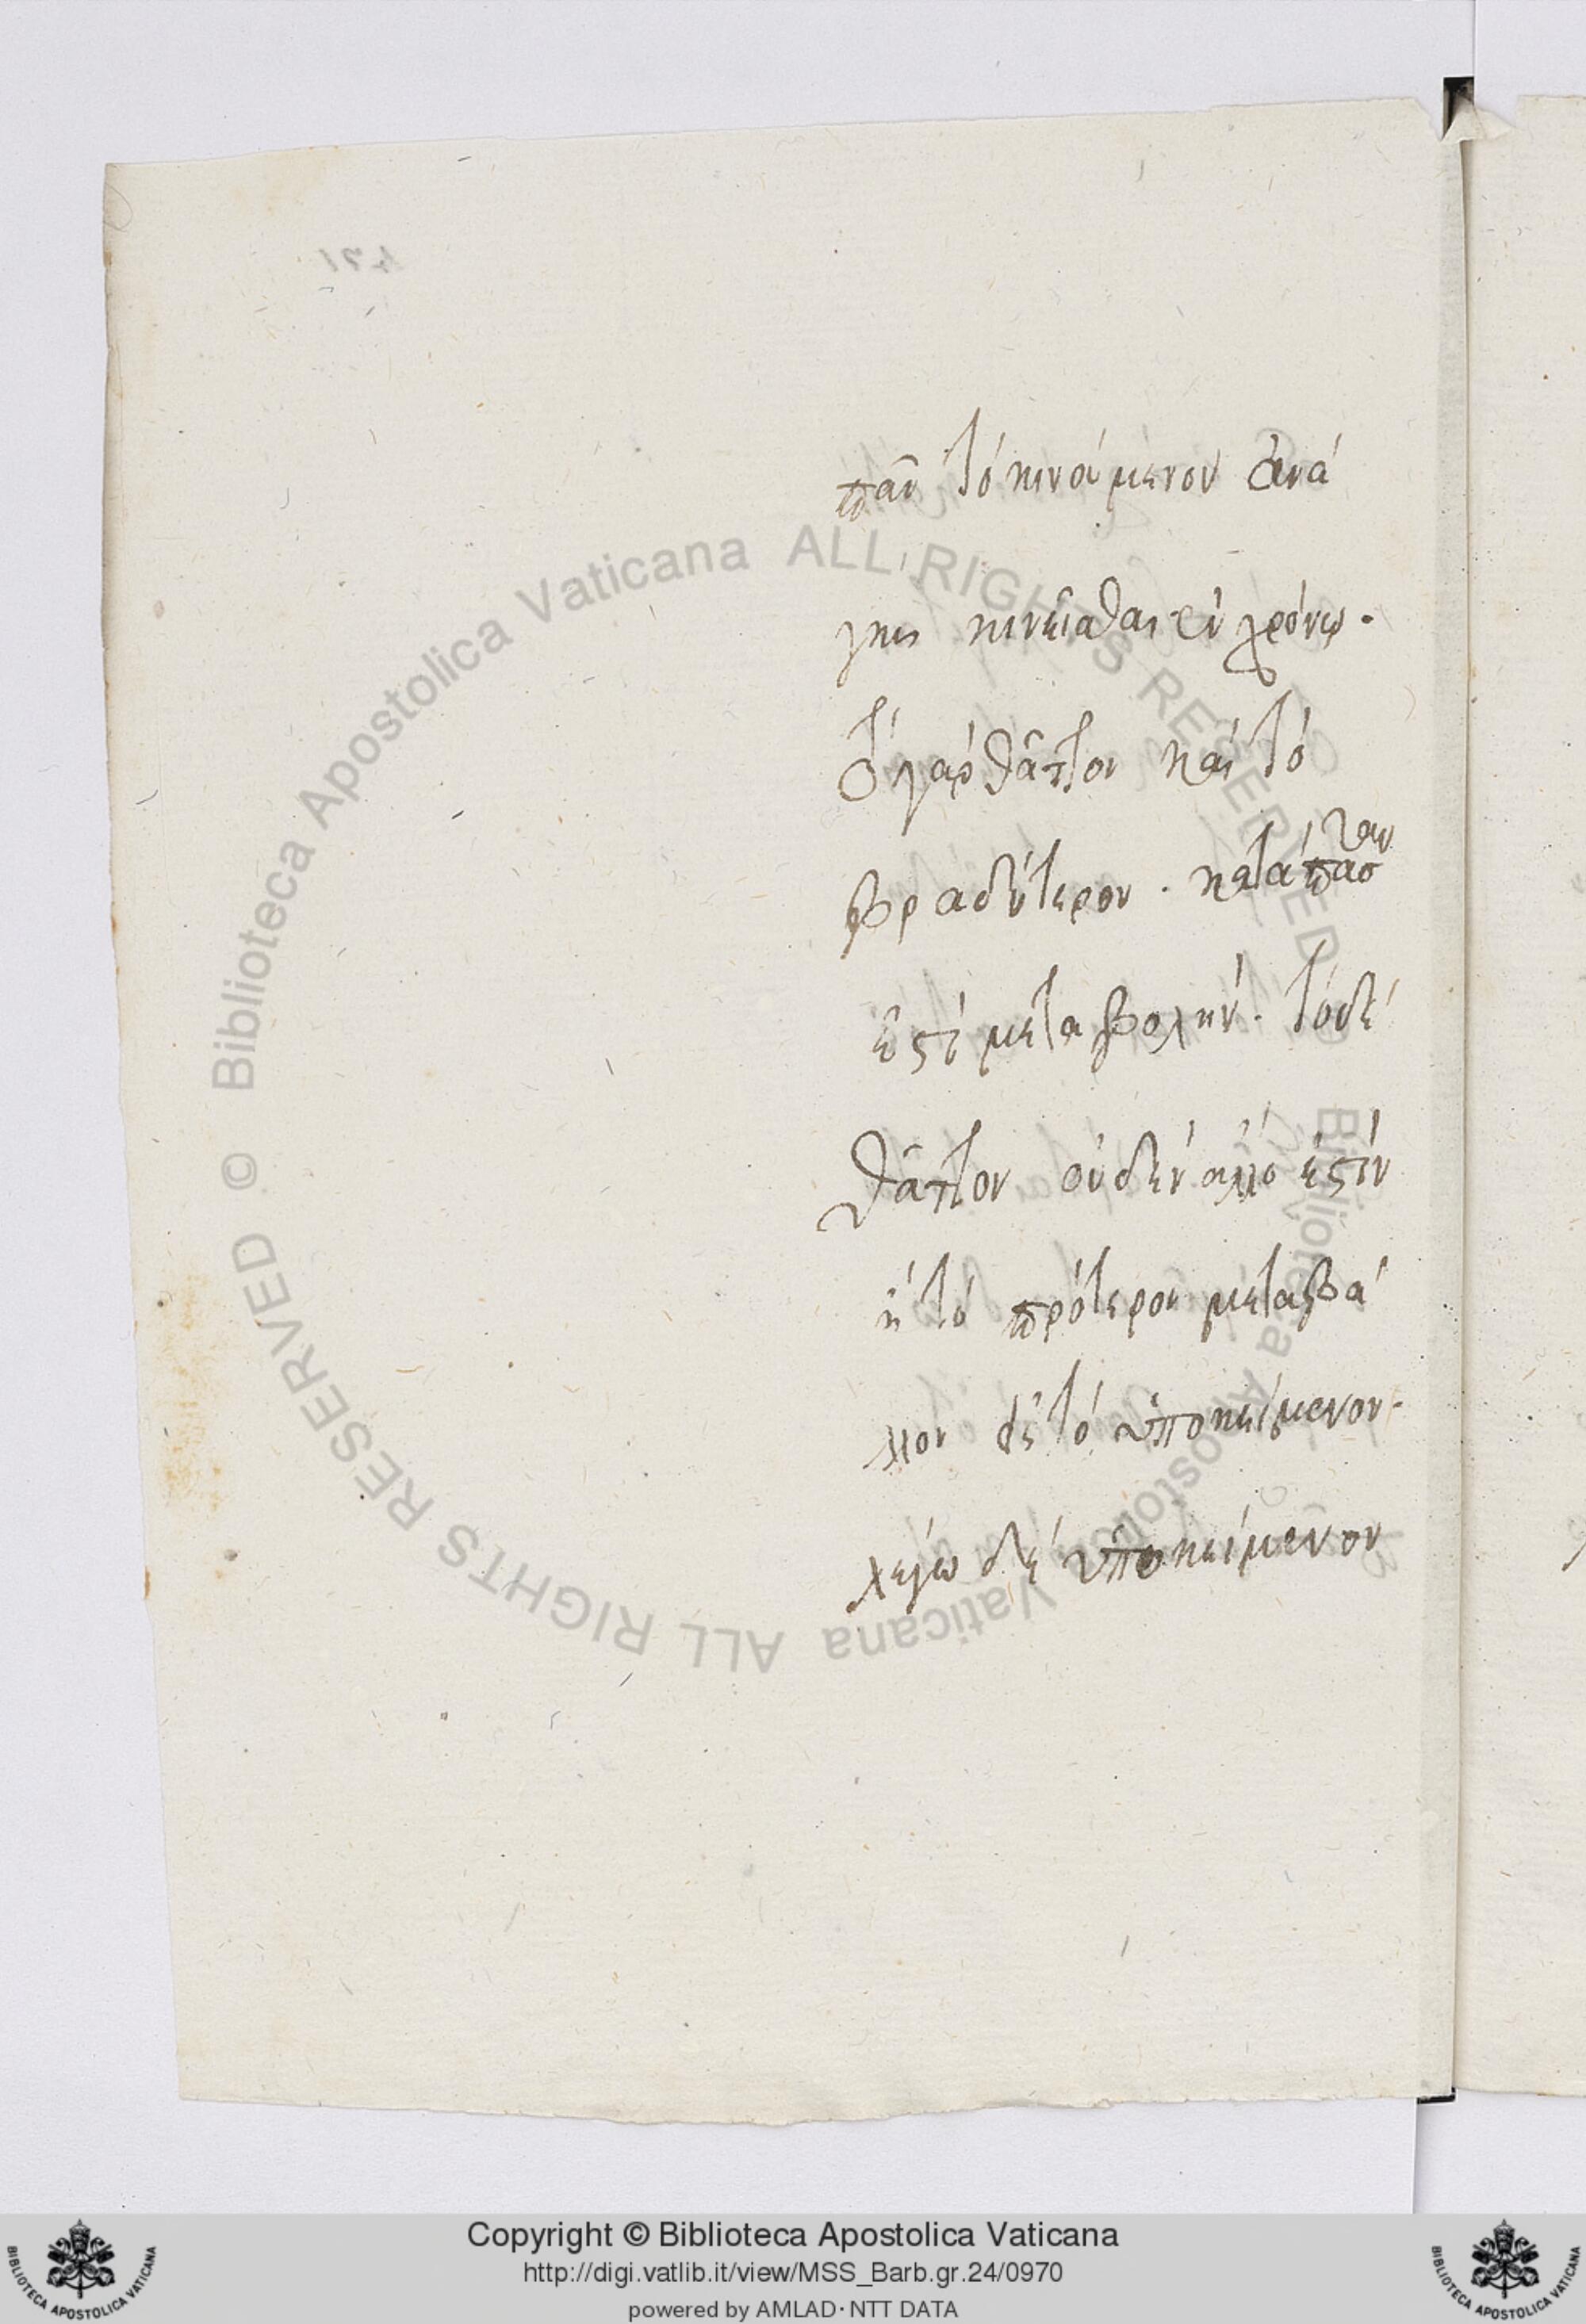 πᾶν τὸ κινούμενον ἀνά
γκη κινεῖσθαι ἐν χρόνῳ.
τὸ γὰρ θᾶττον καὶ τὸ
βραδύτερον. κατὰ πᾶσ
αν
ἐστὶ μεταβολήν. τὸ δὲ
θᾶττον οὐδὲν ἄλλο ἐστὶν
ἢ τὸ πρότερον μεταβά
λλον εἰς τὸ ὑποκείμενον.
λέγω δὲ ὑποκείμενον
Biblioteca Apostolica Vaticana ALL RIGHTS RESERVED ©
Biblioteca Apostolica Vaticana ALL RIGHTS RESERVED ©
Copyright © Biblioteca Apostolica Vaticana
http://digi.vatlib.it/view/MSS_Barb.gr.24/0970
powered by AMLAD·NTT DATA
BIBLIOTECA APOSTOLICA VATICANA
BIBLIOTECA APOSTOLICA VATICANA